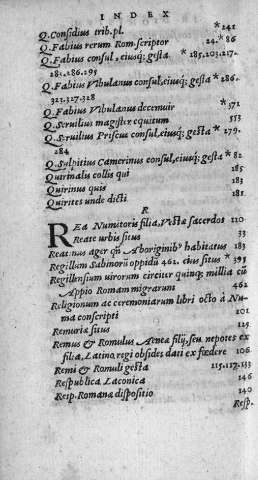 INDEX
Q. Considius trib. pl. *241
Q. Fabius rerum Rom. scriptor 24. *86
Q. Fabius consul, eiusq; gesta *185.203.217.
281.286.295
Q. Fabius Vibulanus consul, eiusq; gesta *286.
321.327.328
Q. Fabius Vibulanus decemuir *371
Q. Seruilius magister equitum 553
Q. Seruilius Priscus consul, eiusq; gesta *279.
284
Q. Sulpitius Camerinus consul, eiusq; gesta *82
Quirinalis collis qui 185
Quirinus quis 183
Quirites unde dicti 181.
R
REA Numitoris filia, Vestæ sacerdos 120
Reate urbis situs 33
Reatinus ager quì Aboriginibꝰ habitatus 183
Regillum Sabinorū oppidū 462. eius situs *393
Regillensium uirorum circiter quinq; millia cū
Appio Romam migrarunt 462
Religionum ac ceremoniarum libri octo à Nu-
ma conscripti 201
Remuriæ situs 129
Remus & Romulus Aeneæ filij, seu nepotes ex
filia, Latino regi obsides dati ex fœdere 106
Remi & Romuli gesta 115.117.133
Respublica Laconica 146
Resp. Romanæ dispositio 140
Resp.